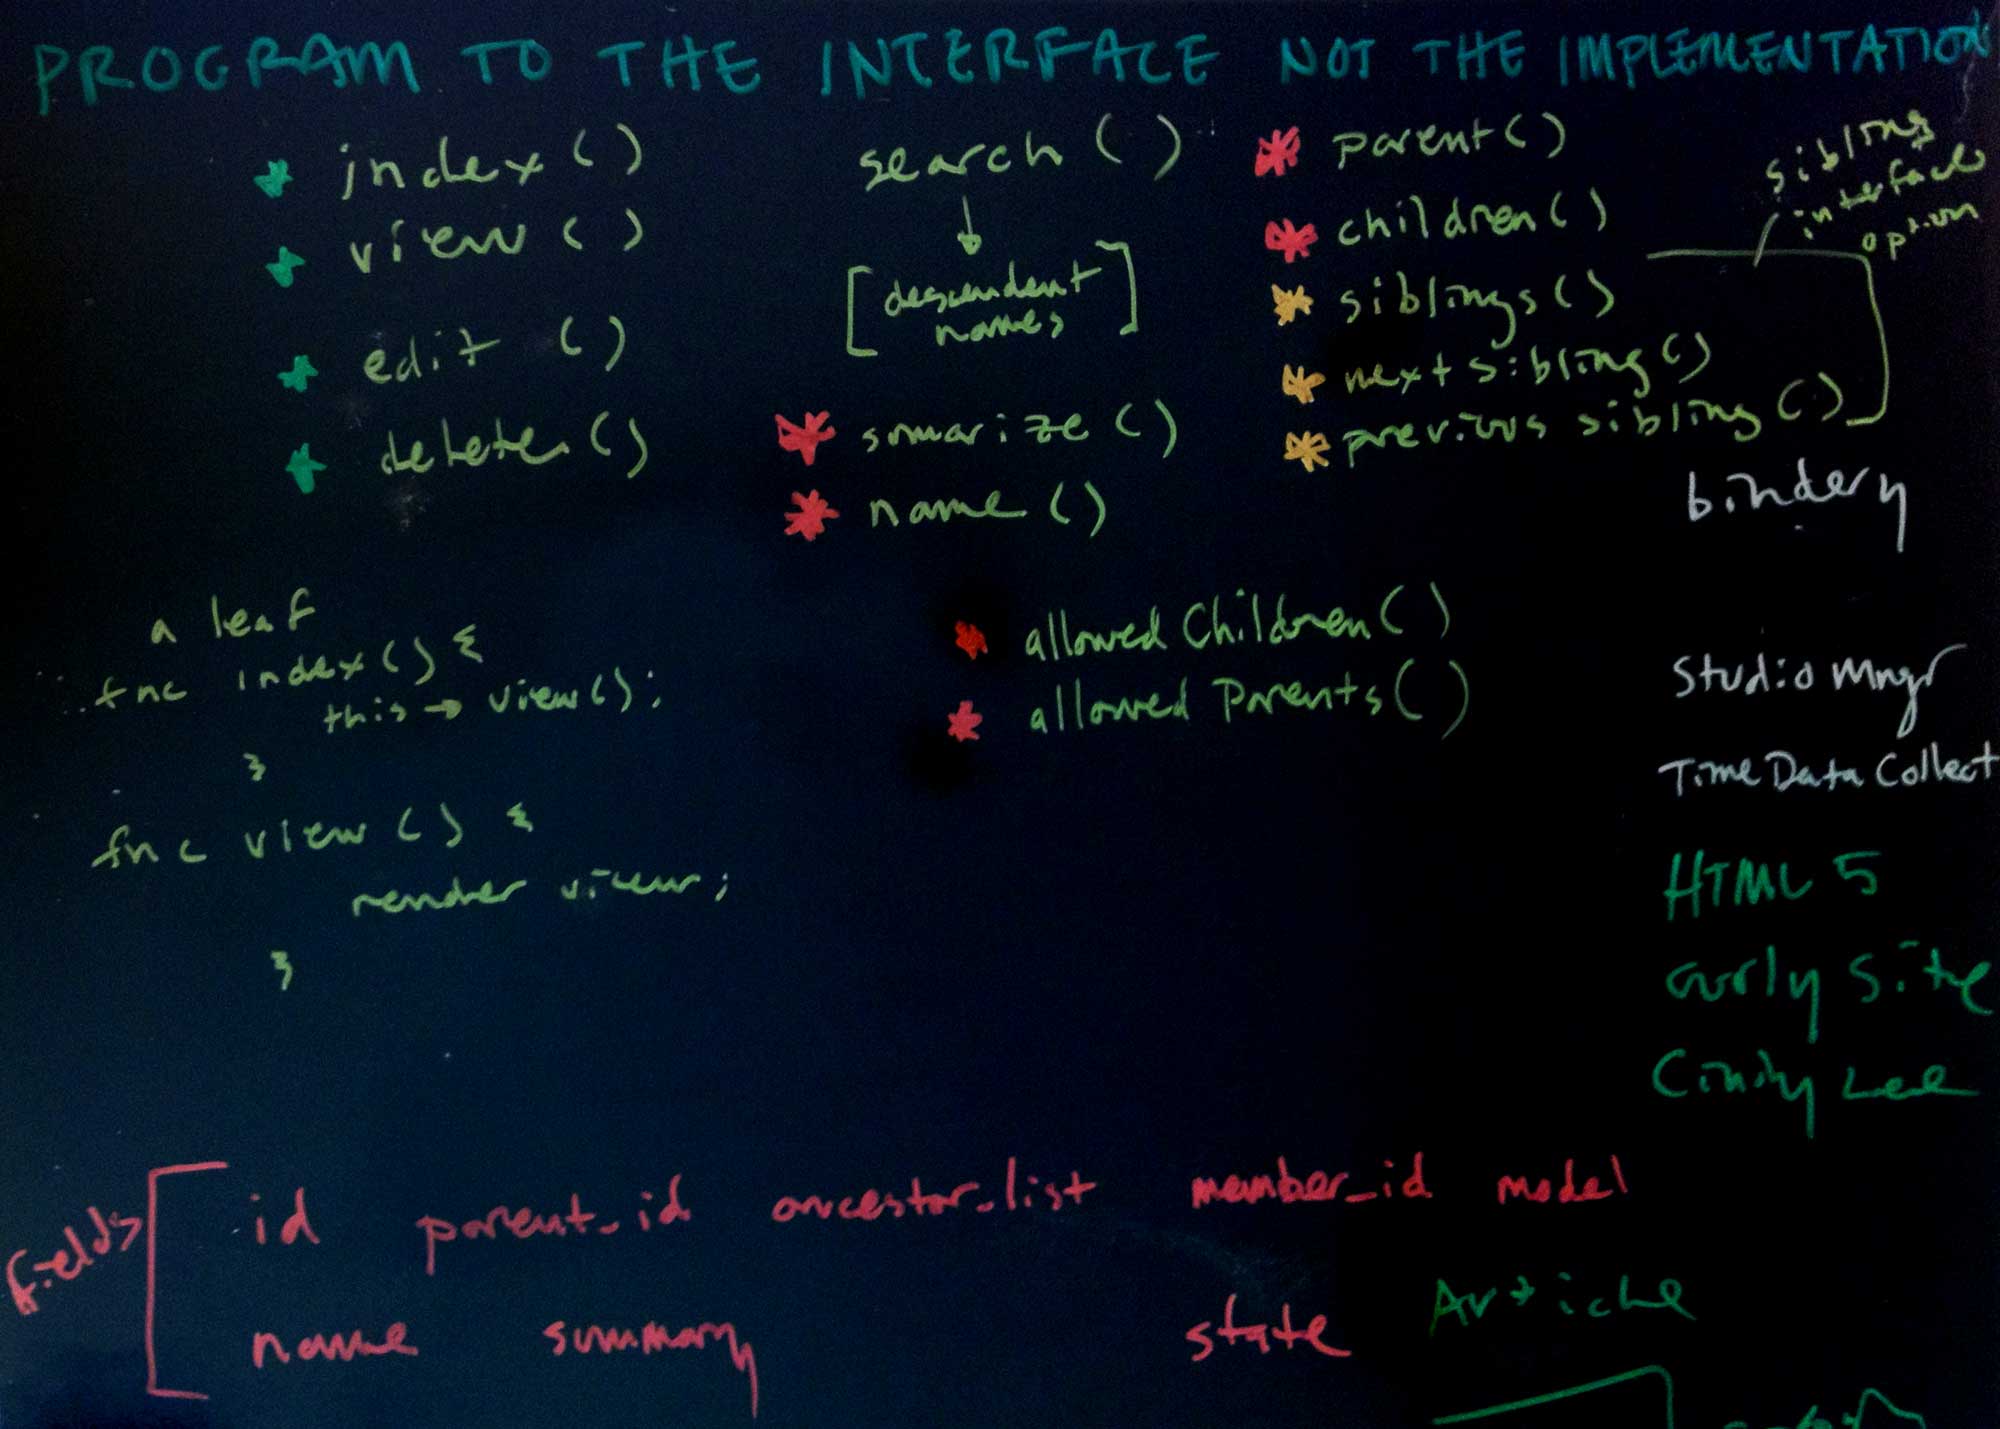 PROGRAM TO THE INTERFACE NOT THE IMPLEMENTATION
* index()
* view()
* edit()
* delete()
search()
[descendent
names]
* sumarize()
* name()
* parent()
* children()
* siblings()
* next sibling()
* previous sibling()
sibling
interface
option
bindery
* allowed Children()
* allowed Parents()
a leaf
fnc index() {
this → view();
}
fnc view() {
render view;
}
Studio Mngr
Time Data Collect
HTML 5
curly site
Cindy Lee
fields
id parent_id ancestor_list member_id model
name summary state Article